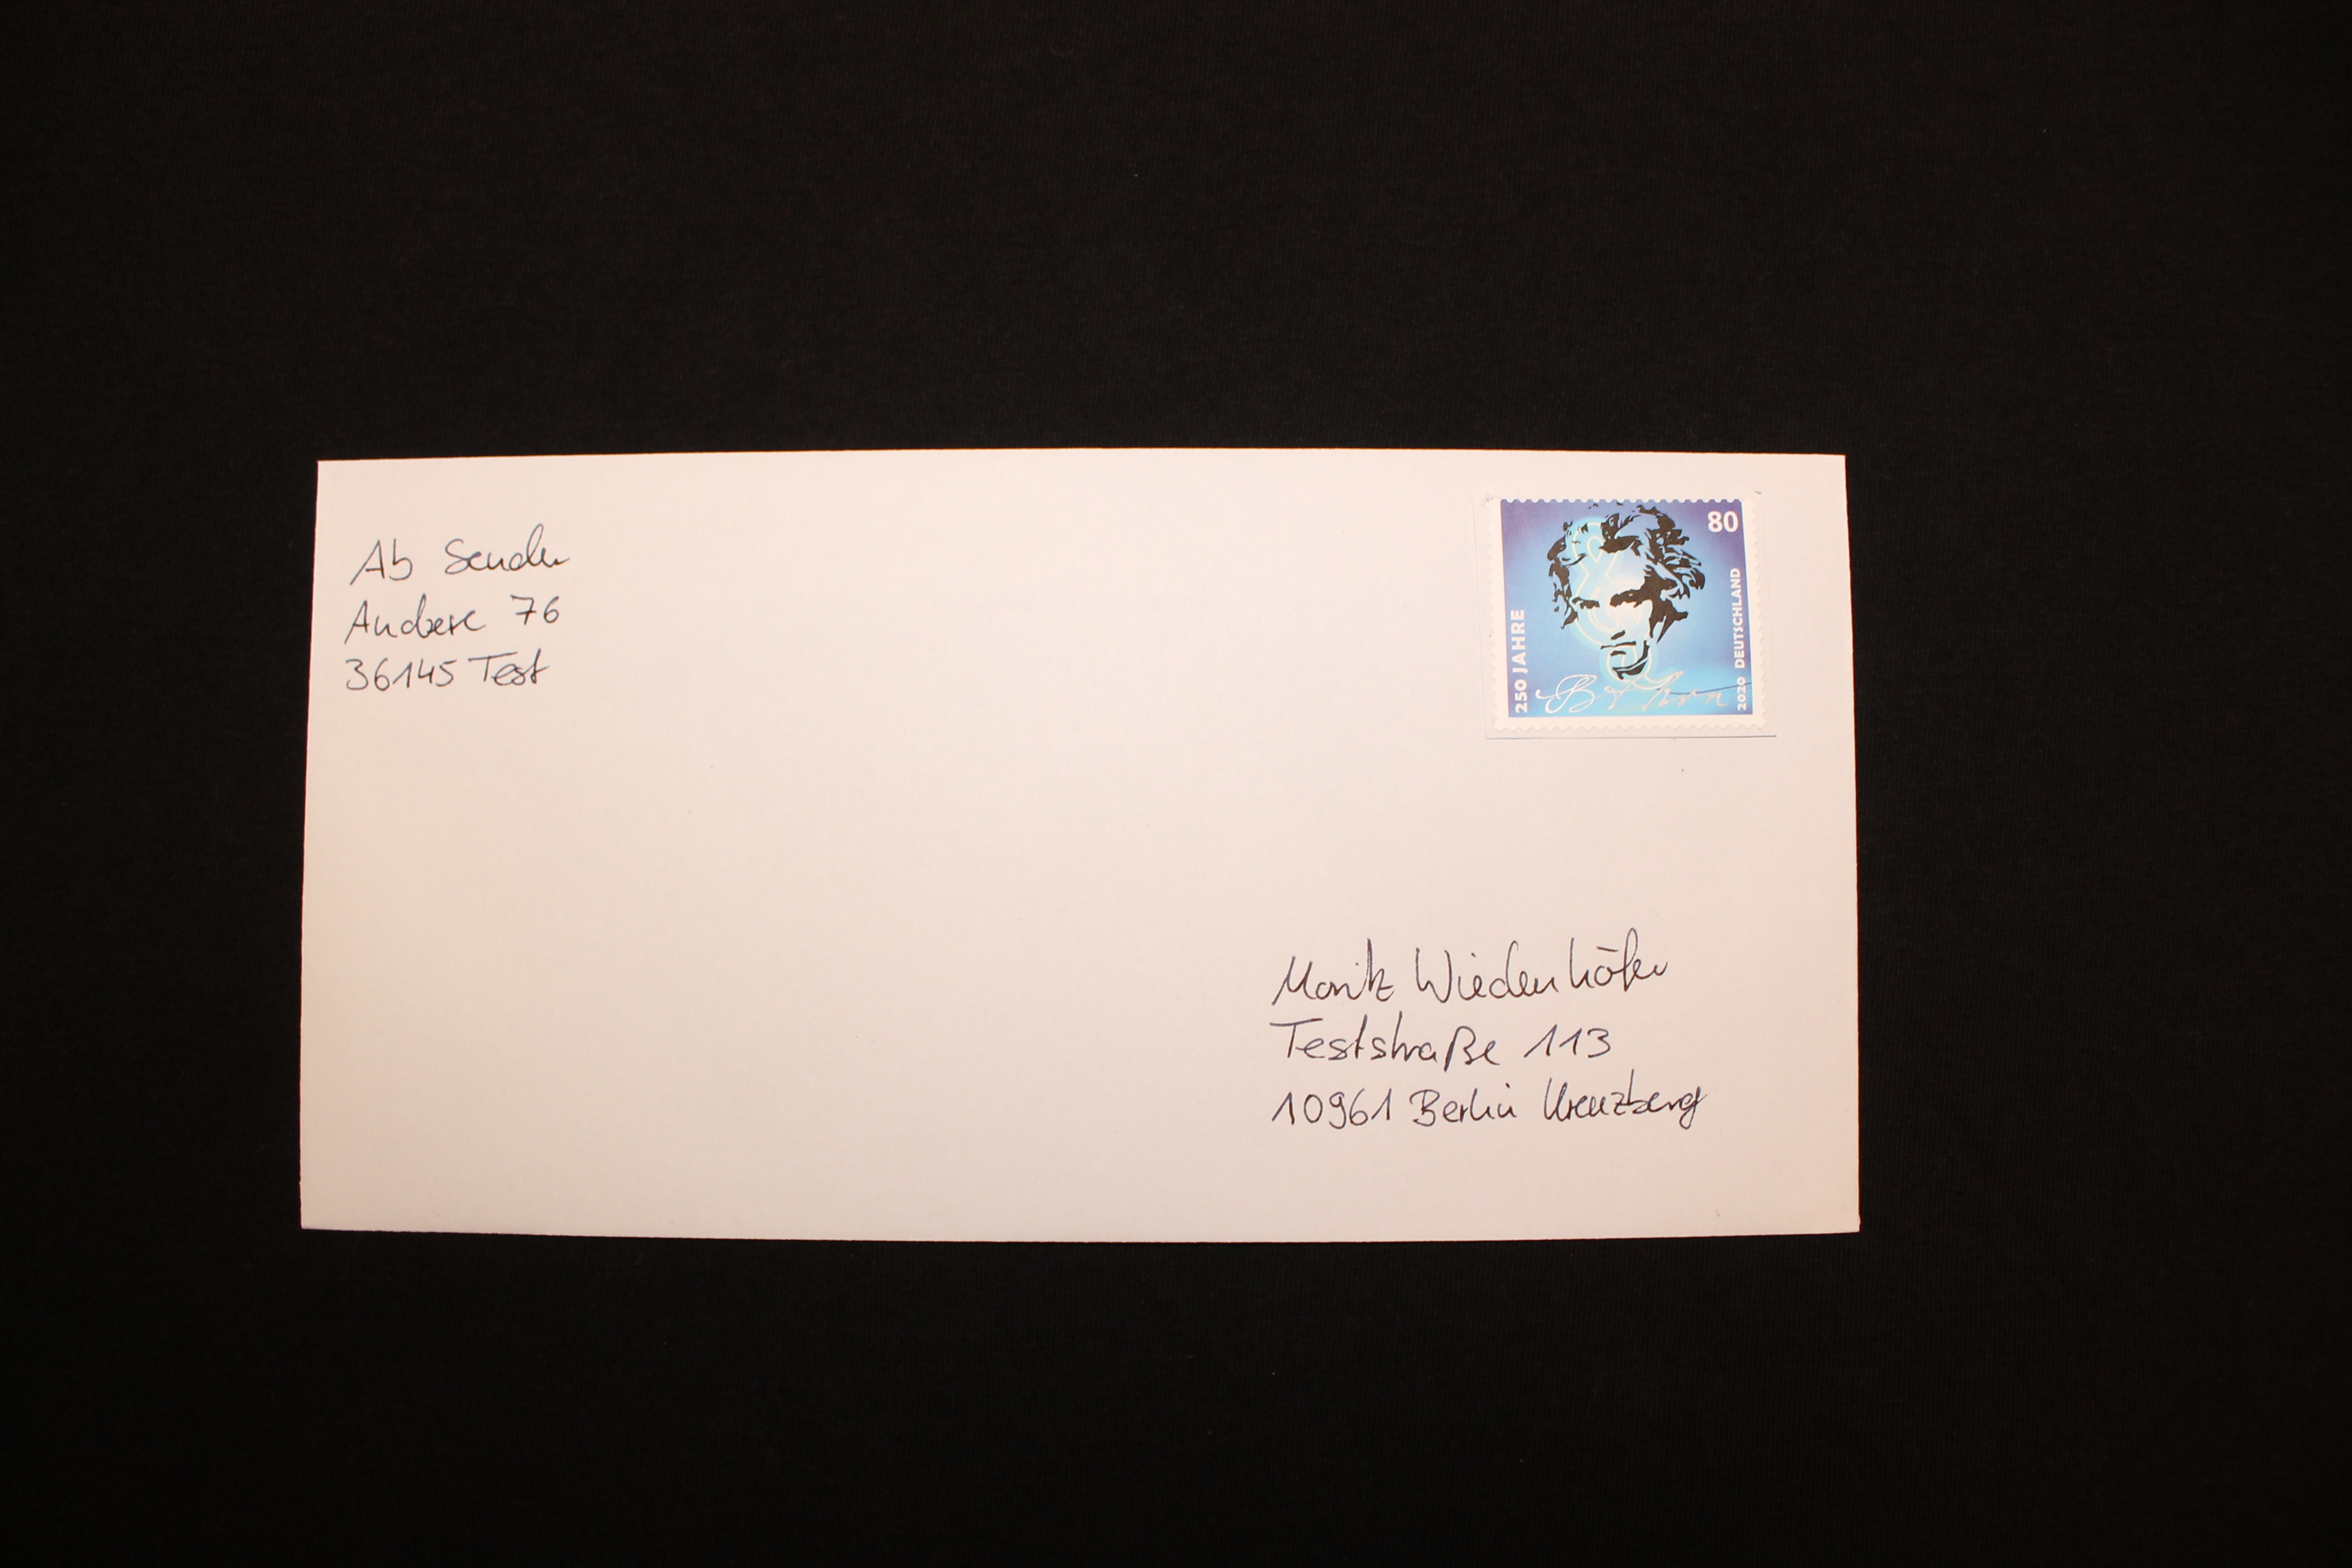 Ab Sender
Andere 76
36145 Test
80
250 JAHRE
2020 DEUTSCHLAND
Moritz Wiedenhöfer
Teststraße 113
10961 Berlin Kreuzberg